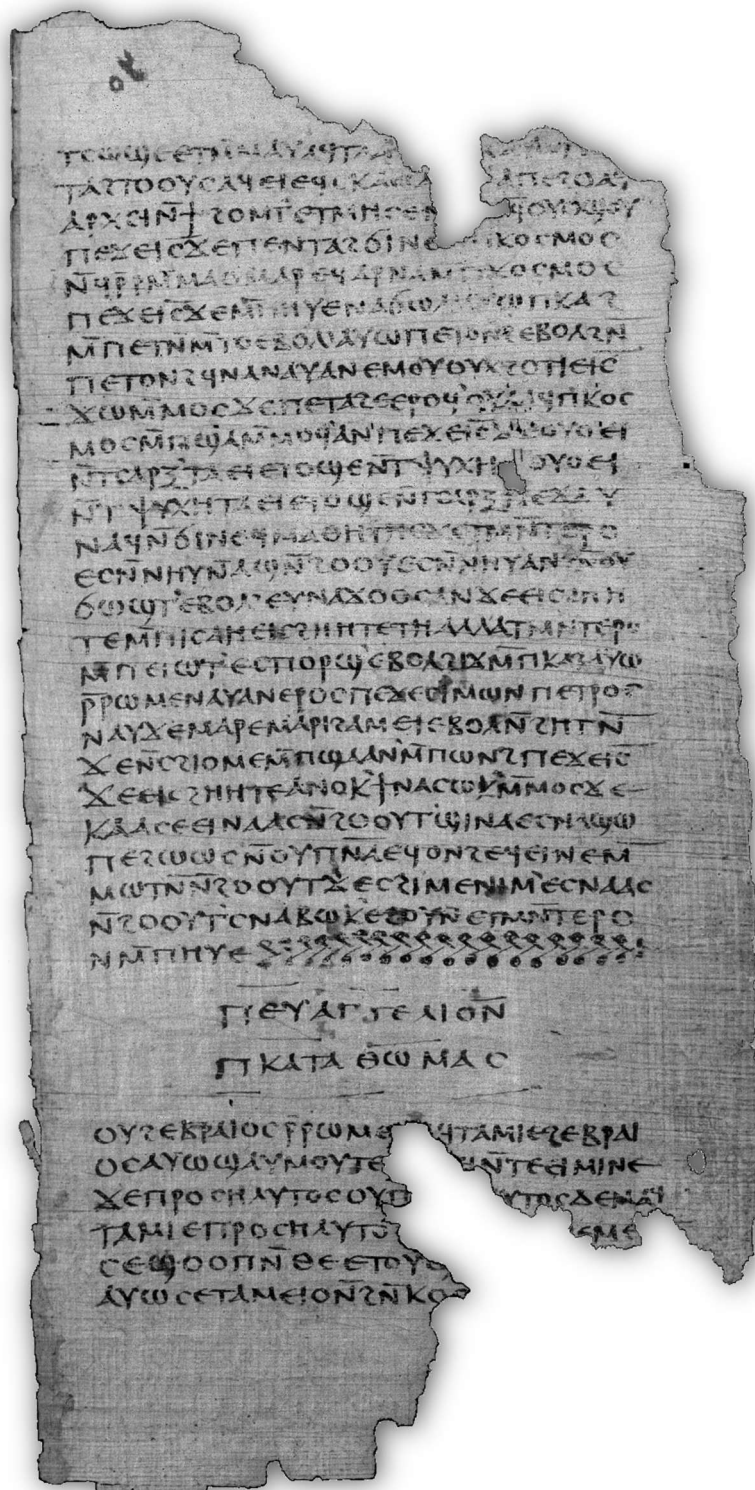 ⲧⲥⲱϣⲉⲉⲧⲙ̄ⲙⲁⲩⲁϥⲧⲁⲁ
ⲧⲁϩⲧⲟⲟⲩⲥⲁϥⲉⲓⲉϥⲥⲕⲁⲉⲓⲁ ⲁⲡⲉϩⲟⲁϥ
ⲁⲣⲭⲉⲓⲛ̄ϯϩⲟⲙⲧ'ⲉⲧⲙⲏⲥⲉⲛ ϥⲟⲩⲟϣⲟⲩ
ⲡⲉϫⲉⲓ̄ⲥ̄ϫⲉⲡⲉⲛⲧⲁϩϭⲓⲛⲉ ⲡⲕⲟⲥⲙⲟⲥ
ⲛ̄ϥⲣ̄ⲣⲙ̄ⲙⲁⲟⲙⲁⲣⲉϥⲁⲣⲛⲁⲙ̄ⲡⲕⲟⲥⲙⲟⲥ
ⲡⲉϫⲉⲓ̄ⲥ̄ϫⲉⲙ̄ⲡⲏⲩⲉⲛⲁϭⲱⲗⲁⲩⲱⲡⲕⲁϩ
ⲙ̄ⲡⲉⲧⲛ̄ⲙ̄ⲧⲟⲉⲃⲟⲗ'ⲁⲩⲱⲡⲉⲧⲟⲛϩⲉⲃⲟⲗϩⲛ̄
ⲡⲉⲧⲟⲛϩϥⲛⲁⲛⲁⲩⲁⲛⲉⲙⲟⲩⲟⲩⲭϩⲟⲧⲓⲉⲓ̄ⲥ̄
ϫⲱⲙ̄ⲙⲟⲥϫⲉⲡⲉⲧⲁϩⲉⲉⲣⲟϥ'ⲟⲩⲁⲁϥⲡⲕⲟⲥ
ⲙⲟⲥⲙ̄ⲡϣⲁⲙ̄ⲙⲟϥ'ⲁⲛ'ⲡⲉϫⲉⲓ̄ⲥ̄ϫⲉⲟⲩⲟⲉⲓ
ⲛ̄ⲧⲥⲁⲣⲝ̄ⲧⲁⲉⲓⲉⲧⲟϣⲉⲛ̄ⲧⲯⲩⲭⲏ ⲟⲩⲟⲉⲓ
ⲛ̄ⲧⲯⲩⲭⲏⲧⲁⲉⲓⲉⲧⲟϣⲉⲛ̄ⲧⲥⲁⲣⲝ̄ⲡⲉϫⲁⲩ
ⲛⲁϥⲛ̄ϭⲓⲛⲉϥⲙⲁⲑⲏⲧⲏⲥϫⲉⲧⲙⲛ̄ⲧⲉⲣⲟ
ⲉⲥⲛ̄ⲛⲏⲩⲛ̄ⲁϣⲛ̄ϩⲟⲟⲩⲉⲥⲛ̄ⲛⲏⲩⲁⲛϩⲛ̄ⲟⲩ
ϭⲱϣⲧ'ⲉⲃⲟⲗ'ⲉⲩⲛⲁϫⲟⲟⲥⲁⲛϫⲉⲉⲓⲥϩⲏⲏ
ⲧⲉⲙ̄ⲡⲓⲥⲁⲏⲉⲓⲥϩⲏⲏⲧⲉⲧⲏⲁⲗⲗⲁⲧⲙⲛ̄ⲧⲉⲣⲟ
ⲙ̄ⲡⲉⲓⲱⲧ'ⲉⲥⲡⲟⲣϣ'ⲉⲃⲟⲗϩⲓϫⲙ̄ⲡⲕⲁϩⲁⲩⲱ
ⲣ̄ⲣⲱⲙⲉⲛⲁⲩⲁⲛⲉⲣⲟⲥⲡⲉϫⲉⲥⲓⲙⲱⲛⲡⲉⲧⲣⲟⲥ
ⲛⲁⲩϫⲉⲙⲁⲣⲉⲙⲁⲣⲓϩⲁⲙⲉⲓⲉⲃⲟⲗⲛ̄ϩⲏⲧⲛ̄
ϫⲉⲛ̄ⲥϩⲓⲟⲙⲉⲙ̄ⲡϣⲁⲁⲛ'ⲙ̄ⲡⲱⲛϩⲡⲉϫⲉⲓ̄ⲥ̄
ϫⲉⲉⲓⲥϩⲏⲏⲧⲉⲁⲛⲟⲕ'ϯⲛⲁⲥⲱⲕ'ⲙ̄ⲙⲟⲥϫⲉ
ⲕⲁⲁⲥⲉⲉⲓⲛⲁⲁⲥⲛ̄ϩⲟⲟⲩⲧ'ϣⲓⲛⲁⲉⲥⲛⲁϣⲱ
ⲡⲉϩⲱⲱⲥⲛ̄ⲟⲩⲡ̄ⲛ̄ⲁ̄ⲉϥⲟⲛϩⲉϥⲉⲓⲛⲉⲙ̄
ⲙⲱⲧⲛ̄ⲛ̄ϩⲟⲟⲩⲧ'ϫⲉⲥϩⲓⲙⲉⲛⲓⲙ'ⲉⲥⲛⲁⲁⲥ
ⲛ̄ϩⲟⲟⲩⲧ'ⲥⲛⲁⲃⲱⲕ'ⲉϩⲟⲩⲛⲉⲧⲙⲛ̄ⲧⲉⲣⲟ
ⲛⲙ̄ⲡⲏⲩⲉ
ⲡⲉⲩⲁⲅⲅⲉⲗⲓⲟⲛ
ⲡⲕⲁⲧⲁⲑⲱⲙⲁⲥ
ⲟⲩϩⲉⲃⲣⲁⲓⲟⲥⲣ̄ⲣⲱⲙⲉ ϥⲧⲁⲙⲓⲉϩⲉⲃⲣⲁⲓ
ⲟⲥⲁⲩⲱϣⲁⲩⲙⲟⲩⲧⲉ ⲛ̄ⲧⲉⲉⲓⲙⲓⲛⲉ
ϫⲉⲡⲣⲟⲥⲏⲗⲩⲧⲟⲥⲟⲩⲡ ⲩⲧⲟⲥⲇⲉⲙⲁϥ
ⲧⲁⲙⲓⲉⲡⲣⲟⲥⲏⲗⲩⲧⲟⲥ ⲉⲙⲉ
ⲥⲉϣⲟⲟⲡⲛ̄ⲑⲉⲉⲧⲟⲩ
ⲁⲩⲱⲥⲉⲧⲁⲙⲉⲓⲟⲛ̄ϩⲛ̄ⲕⲟ